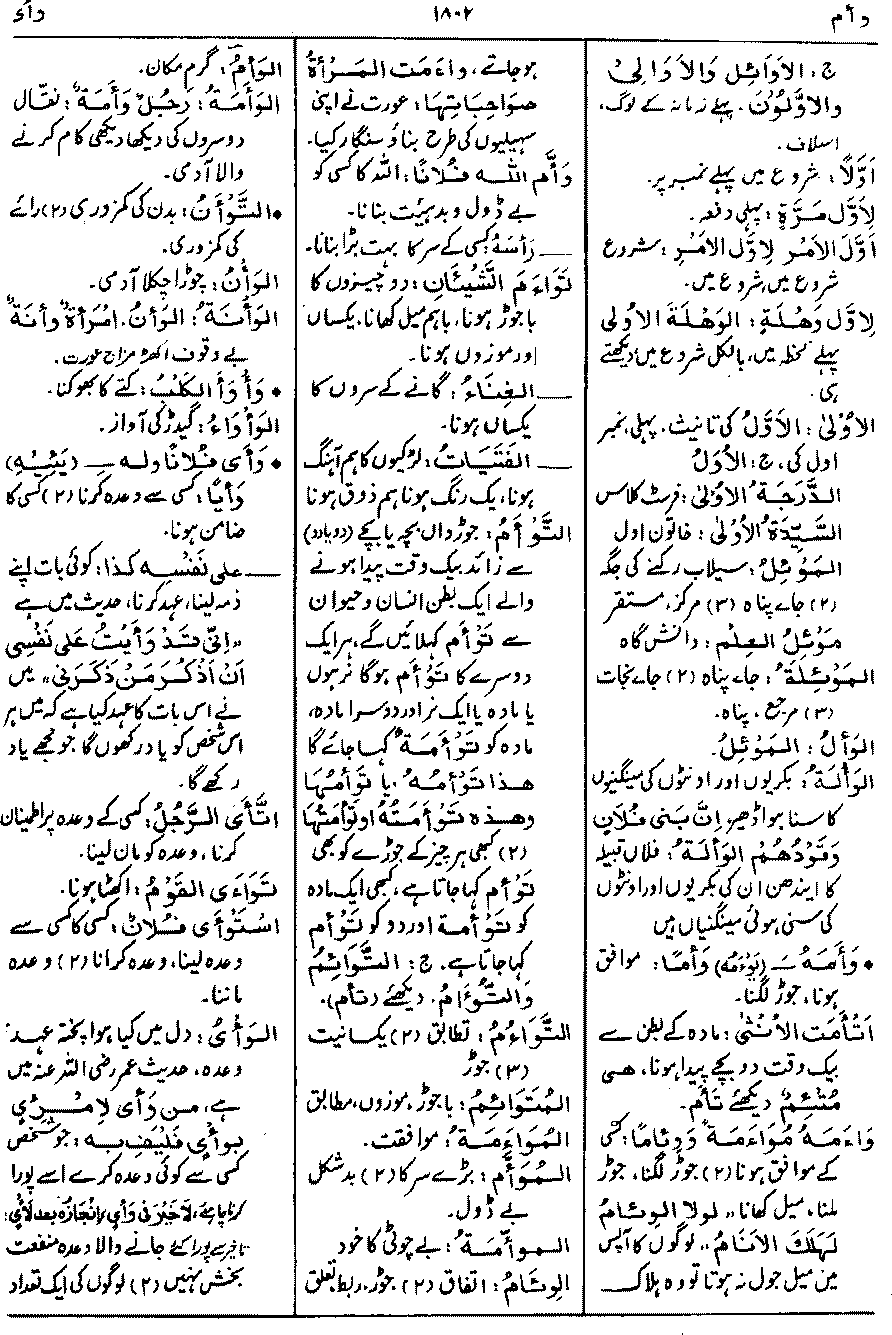 وأم
١٨٠٢
وأى
ج: الأَوَائِل وَالأَوَالِيْ
والاوَّلُوْنَ. پہلے زمانہ کے لوگ،
اسلاف.
اَوَّلاً: شروع میں پہلے نمبر پر.
لِاَوَّلِ مَرَّةٍ: پہلی دفعہ.
اَوَّلَ الأَمْرِ لِاَوَّلِ الأَمْرِ: شروع
شروع میں، شروع میں.
لِاَوَّلِ وَهْلَةٍ: الوَهْلَةَ الأُوْلىٰ
پہلے لحظہ میں، بالکل شروع میں دیکھتے
ہی.
الأُوْلىٰ: الأَوَّلُ کی تانیث. پہلی، نمبر
اول کی، ج: الأُوَلُ
الدَّرَجَةُ الأُوْلىٰ: فرسٹ کلاس
السَّيِّدَةُ الأُوْلىٰ: خاتون اول
المَوْئِلُ: سیلاب رکنے کی جگہ
(٢) جاے پناہ (٣) مرکز، مستقر
مَوْئِلُ العِلْم: دانش گاہ
المَوْئِلَةُ: جاے پناہ (٢) جاے نجات
(٣) مرجع، پناہ.
الوَأْلُ: المَوْئِلُ.
الوَأْلَةُ: بکریوں اور اونٹوں کی مینگنیوں
کا سنا ہوا ڈھیر، اِنَّ بَنِی فُلَانٍ
وَقُوْدُهُمُ الوَأْلَةُ: فلاں قبیلہ
کا ایندھن ان کی بکریوں اور اونٹوں
کی سنی ہوئی مینگنیاں ہیں
• وَأَمَهُ ــَ (يَوْءَمُهُ) وَأْمًا: موافق
ہونا، جوڑ لگنا.
اَتْأَمَتِ الأُنْثىٰ: مادہ کے بطن سے
بیک وقت دو بچے پیدا ہونا، هی
مُتْئِمٌ دیکھئے تَأم.
وَاءَمَهُ مُوَاءَمَةً وَوِئَامًا: کسی
کے موافق ہونا (٢) جوڑ لگنا، جوڑ
ملنا، میل کھانا، "لولا الوِئَامُ
لَهَلَكَ الأَنَامُ"، لوگوں کا آپس
میں میل جول نہ ہوتا تو وہ ہلاک
ہو جاتے، وَاءَمَتِ المَرْأةُ
صَوَاحِبَاتِهَا: عورت نے اپنی
سہیلیوں کی طرح بناؤ سنگار کیا.
وَأَّمَ اللهُ فُلَانًا: اللہ کا کسی کو
بے ڈول و بدہیئت بنانا.
ــــ رَأْسَهُ: کسی کے سر کا بہت بڑا بنانا.
تَوَاءَمَ الشَّيْئَانِ: دو چیزوں کا
باجوڑ ہونا، باہم میل کھانا، یکساں
اور موزوں ہونا.
ــــ الغِنَاءُ: گانے کے سروں کا
یکساں ہونا.
ــــ الفَتَيَاتُ: لڑکیوں کا ہم آہنگ
ہونا، یک رنگ ہونا ہم ذوق ہونا
التَّوْأَمُ: جوڑواں بچہ یا بچے (دو یا دو)
سے زائد بیک وقت پیدا ہونے
والے ایک بطن انسان و حیوان
سے تَوْأم کہلائیں گے، ہر ایک
دوسرے کا تَوْأم ہوگا نر ہوں
یا مادہ یا ایک نر اور دوسرا مادہ،
مادہ کو تَوْأَمَةٌ کہا جائے گا
هذا تَوْأَمُهُ یا تَوْأَمُهَا
وهذه تَوْأَمَتُهُ او تَوْأَمَتُهَا
(٢) کبھی ہر چیز کے جوڑے کو بھی
تَوْأم کہا جاتا ہے، کبھی ایک مادہ
کو تَوْأمة اور دو کو تَوْأم
کہا جاتا ہے. ج: التَّوَائِمُ
وَالتُّؤَامُ. دیکھئے (تأم).
التَّوَاءُمُ: تطابق (٢) یکسانیت
(٣) جوڑ
المُتَوَائِمُ: باجوڑ، موزوں، مطابق
المُوَاءَمَةُ: موافقت.
المُوَأَّم: بڑے سر کا (٢) بدشکل
بے ڈول.
الموأَّمَةُ: بے چوٹی کا خود
الوِئَامُ: اتفاق (٢) جوڑ، ربط تعلق
الوَأْمُ: گرم مکان.
الوَأَمَةُ: رَجُلٌ وَأَمَةٌ: نقال
دوسروں کی دیکھا دیکھی کام کرنے
والا آدمی.
• التَّوْأَنُ: بدن کی کمزوری (٢) رائے
کی کمزوری.
الوَأْنُ: چوڑا چکلا آدمی.
الوَأْنَةُ: الوَأْنُ، اِمْرَأةٌ وأنَةٌ
بے وقوف اکھڑ مزاج عورت.
• وَأْوَأَ الكَلْبُ: کتے کا بھوکنا.
الوَأْوَاءُ: گیدڑ کی آواز.
• وَأَى فُلَانًا ولہ ــِ (يَئِيْهِ)
وَأْيًا: کسی سے وعدہ کرنا (٢) کسی کا
ضامن ہونا.
ــــ علی نَفْسِہ کذا: کوئی بات اپنے
ذمہ لینا، عہد کرنا، حدیث میں ہے
"اِنِّی قَدْ وَأَيْتُ عَلٰی نَفْسِی
اَنْ اَذْكُرَ مَنْ ذَكَرَنِی" میں
نے اس بات کا عہد کیا ہے کہ میں ہر
اس شخص کو یاد رکھوں گا جو مجھے یاد
رکھے گا.
اتَّأَى الرَّجُلُ: کسی کے وعدہ پر اطمینان
کرنا، وعدہ کو مان لینا.
تَوَاءَى القَوْمُ: اکٹھا ہونا.
اسْتَوْأَى فُلَانٌ: کسی کا کسی سے
وعدہ لینا، وعدہ کرانا (٢) وعدہ
ماننا.
الوَأْىُ: دل میں کیا ہوا پختہ عہد
وعدہ، حدیث عمر رضی اللہ عنہ میں
ہے، مَن وَأَى لِامْرِئٍ
بِوَأْيٍ فَلْيَفِ بہ: جو شخص
کسی سے کوئی وعدہ کرے اسے پورا
کرنا چاہئے، لَاخَيْرَ فی وَأْيٍ اِنْجَازُهُ بعد لَأْيٍ:
تاخیر سے پورا کئے جانے والا وعدہ منفعت
بخش نہیں (٢) لوگوں کی ایک تعداد